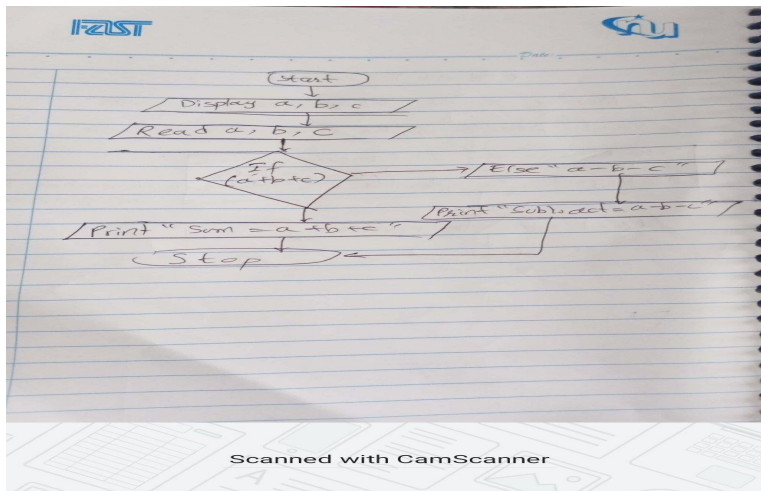 FAST
Date
Start
Display a, b, c
Read a, b, c
If
(a+b+c)
Else "a-b-c"
Print "Sum = a+b+c"
Print "Subtract = a-b-c"
Stop
Scanned with CamScanner